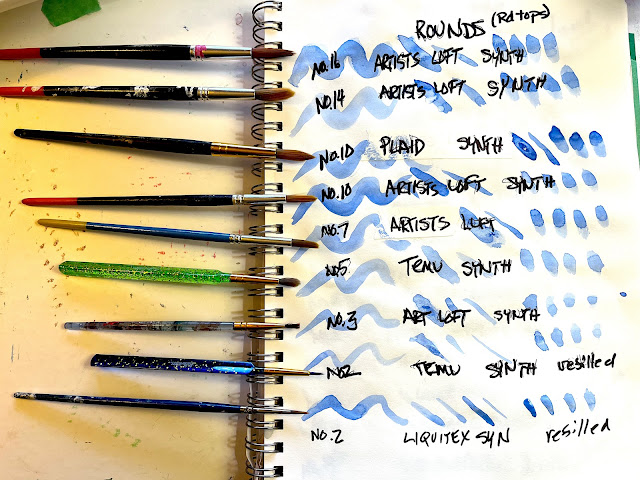 ROUNDS (Rd tops)
No. 16 ARTISTS LOFT SYNTH
No. 14 ARTISTS LOFT SYNTH
No. 10 PLAID SYNTH
No. 10 ARTISTS LOFT SYNTH
No. 7 ARTISTS LOFT
No5 TEMU SYNTH
No. 3 ART LOFT SYNTH
No2 TEMU SYNTH resilled
No. 2 LIQUITEX SYN resilled